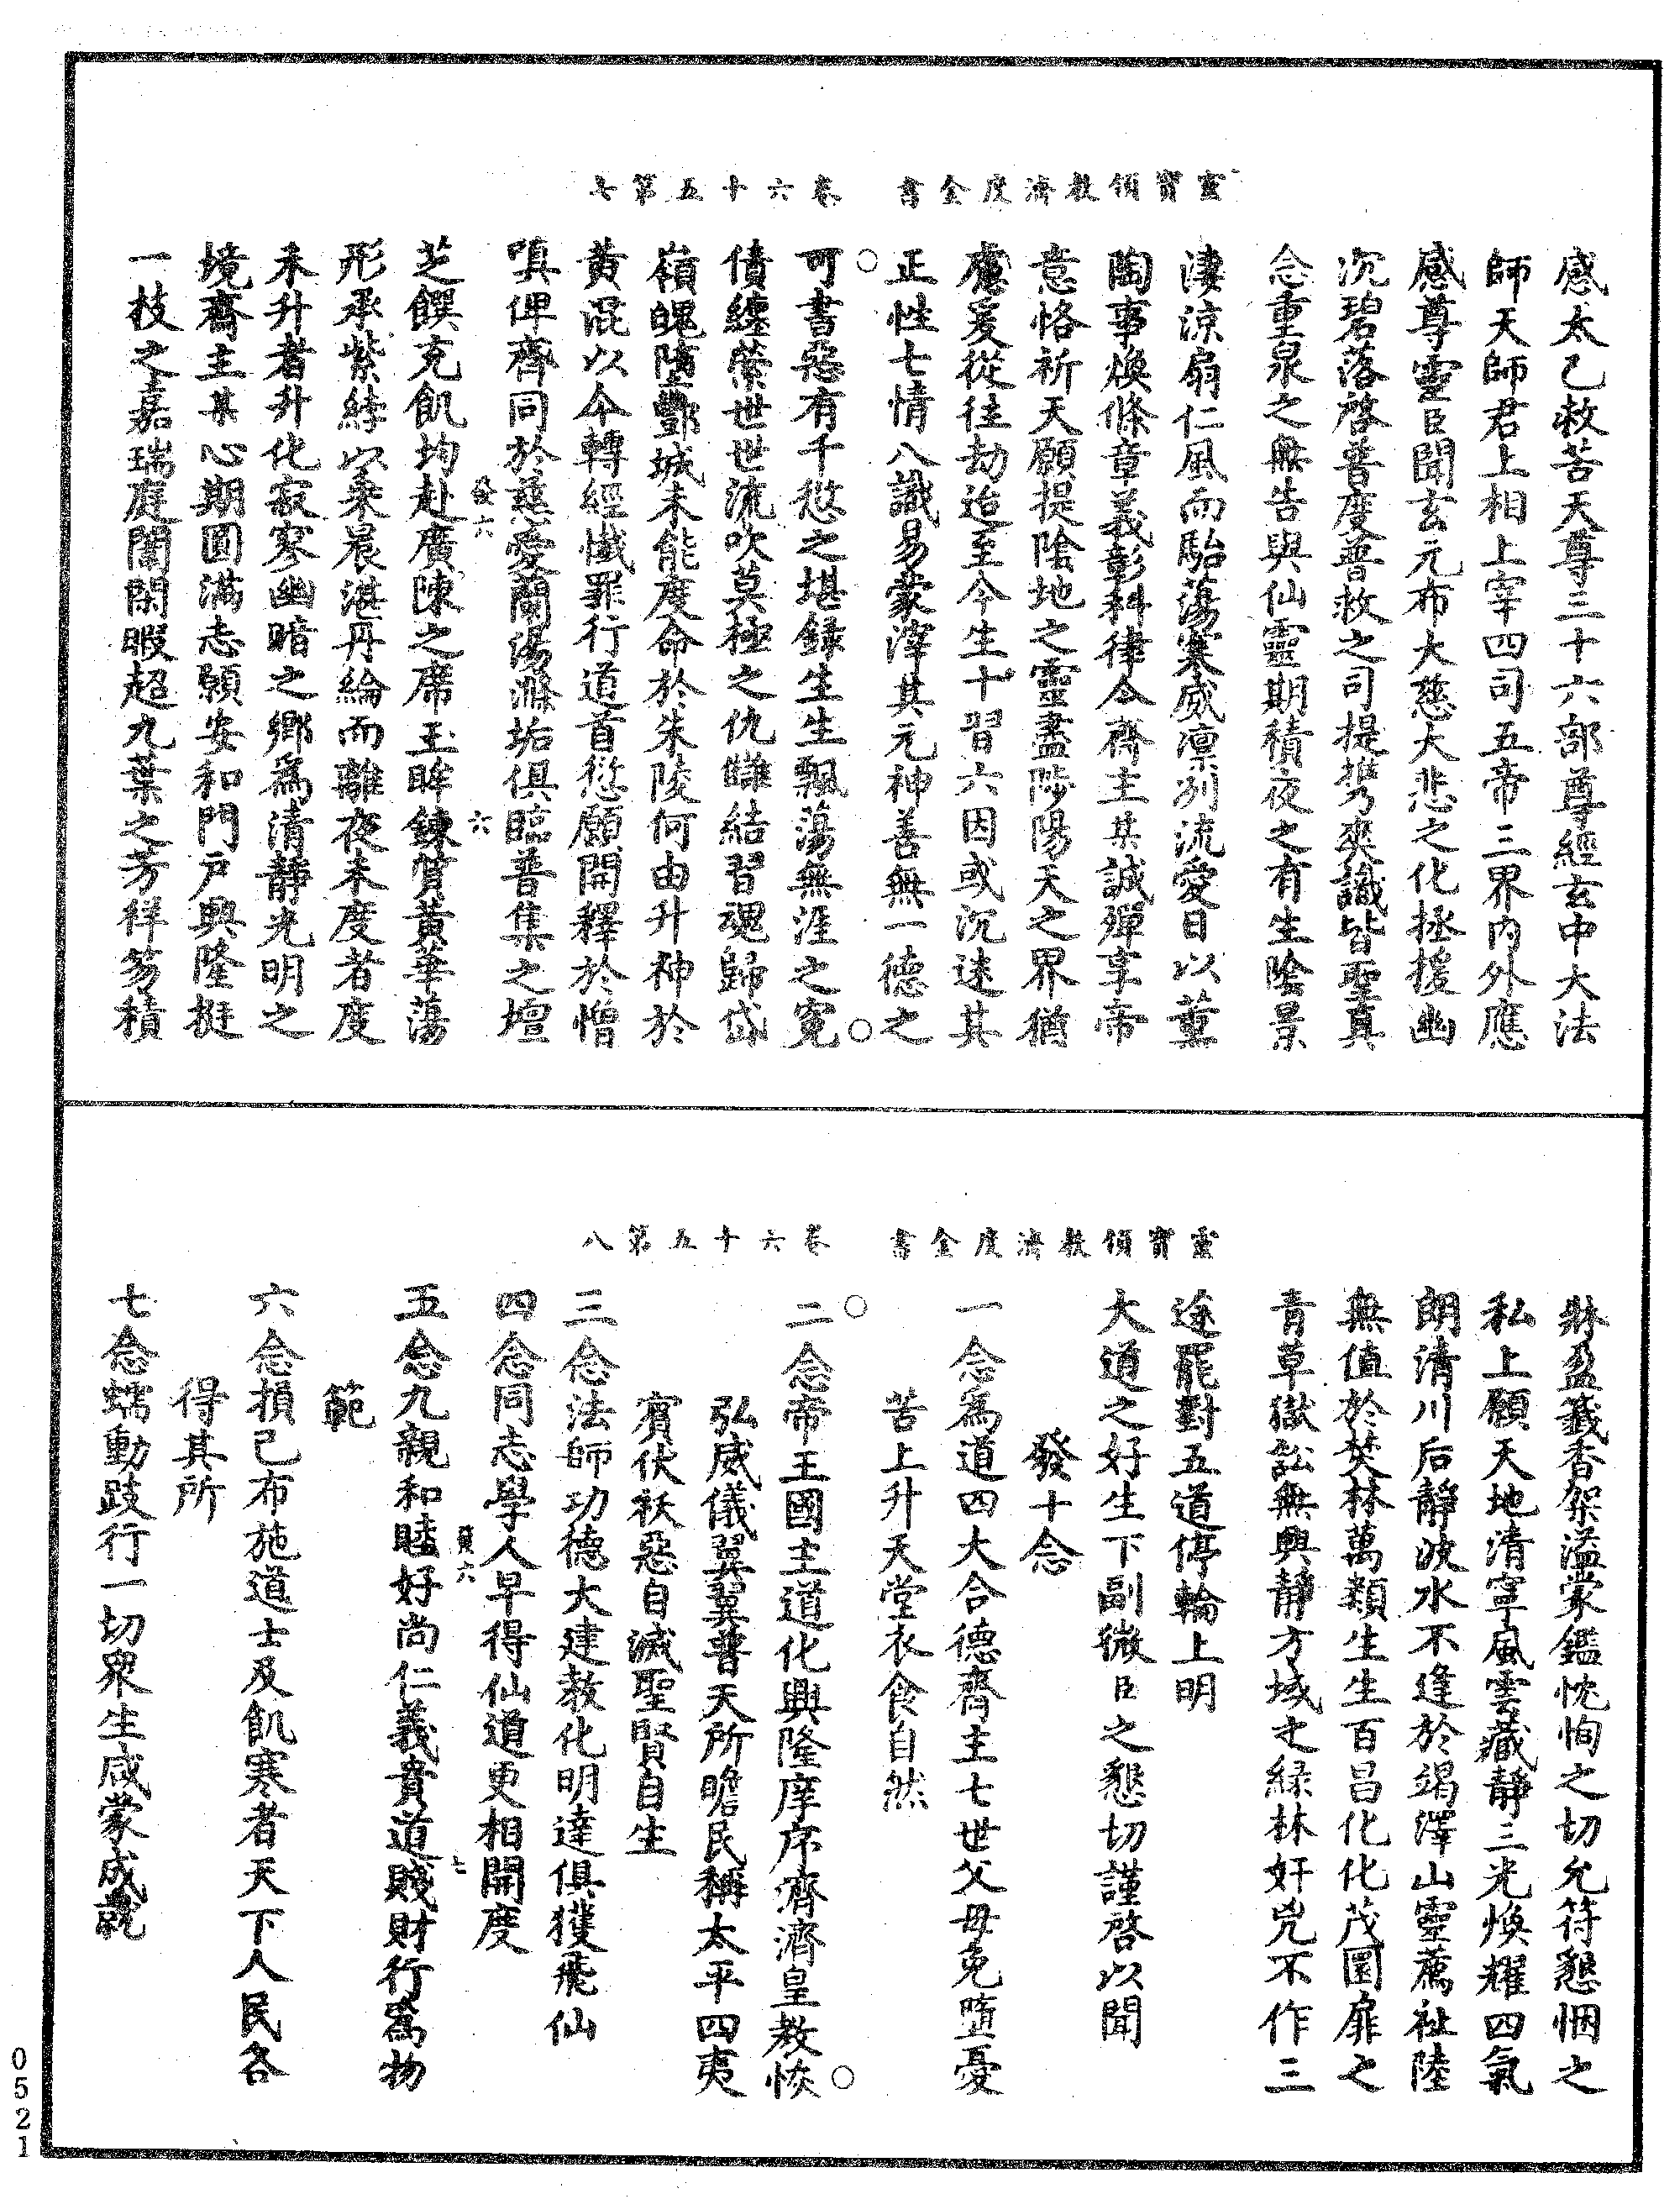 靈寶領教濟度金書 卷六十五第七
感太乙救苦天尊三十六部尊經玄中大法
師天師君上相上宰四司五帝三界內外應
感尊靈臣聞玄元布大慈大悲之化拯援幽
沉碧落啓普度普救之司提携爽識皆聖真
念重泉之無告與仙靈期積夜之有生陰景
淒涼扇仁風而駘蕩寒威凛冽流愛日以薰
陶事煥條章義彰科律今齋主某誠殫享帝
意恪祈天願提陰地之靈盡陟陽天之界猶
慮爰從往劫迨至今生十習六因或沉迷其
正性七情八識易蒙滓其元神善無一德之
可書惡有千愆之堪録生生飄蕩無涯之寃
債纏縈世世流吹莫極之仇讎結習魂歸岱
嶺魄墮酆城未能度命於朱陵何由升神於
黃混以今轉經懺罪行道首愆願開釋於憎
嗔俾齊同於慈愛蘭湯滌垢俱臨普集之壇
芝饌充飢均赴廣陳之席玉眸鍊質黃華蕩
形承紫綍以乘晨湛丹綸而離夜未度者度
未升者升化寂寥幽暗之鄉爲清靜光明之
境齋主某心期圓滿志願安和門戶興隆挺
一枝之嘉瑞庭闈閑暇超九葉之芳祥笏積
靈寶領教濟度金書 卷六十五第八
牀盈籤香架溢蒙鑑忱恂之切允符懇悃之
私上願天地清寧風雲藏靜三光煥耀四氣
朗清川后靜波水不逢於竭澤山靈薦祉陸
無值於焚林萬類生生百昌化化茂圜扉之
青草獄訟無興靜方域之緑林奸兇不作三
途罷對五道停輪上明
大道之好生下副微臣之懇切謹啓以聞
發十念
一念爲道四大合德齋主七世父母免墮憂
苦上升天堂衣食自然
二念帝王國主道化興隆庠序濟濟皇教恢
弘威儀翼翼普天所瞻民稱太平四夷
賓伏祅惡自滅聖賢自生
三念法師功德大建教化明達俱獲飛仙
四念同志學人早得仙道更相開度
五念九親和睦好尚仁義貴道賤財行爲物
範
六念損己布施道士及飢寒者天下人民各
得其所
七念蠕動跂行一切眾生咸蒙成就
0521